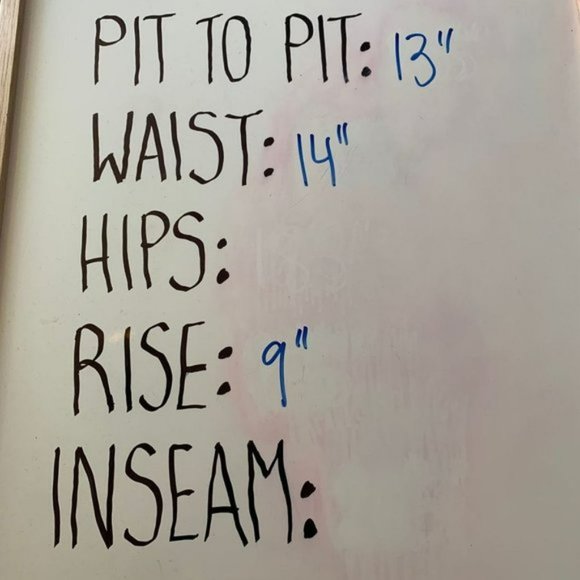 PIT TO PIT: 13"
WAIST: 14"
HIPS:
RISE: 9"
INSEAM: